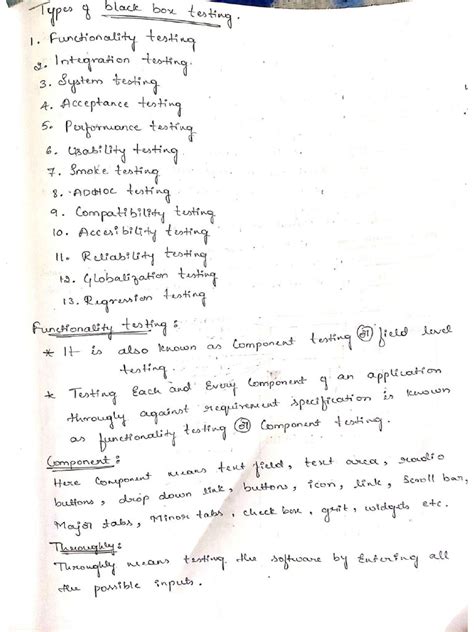 Types of black box testing.
1. Functionality testing
2. Integration testing.
3. System testing
4. Acceptance testing
5. Performance testing
6. Usability testing
7. Smoke testing
8. ADHOC testing
9. Compatibility testing
10. Accesibility testing
11. Reliability testing
12. Globalization testing
13. Regression testing
Functionality testing :
* It is also known as Component testing or field level
testing.
* Testing Each and Every Component of an application
throughly against requirement specification is known
as functionality testing or Component testing.
Component :
Here Component means text field, text area, radio
buttons, drop down link, buttons, icon, link, Scroll bar,
Major tabs, Minor tabs, check box, grit, widgets etc.
Throughly :
Throughly means testing the software by Entering all
the possible inputs.